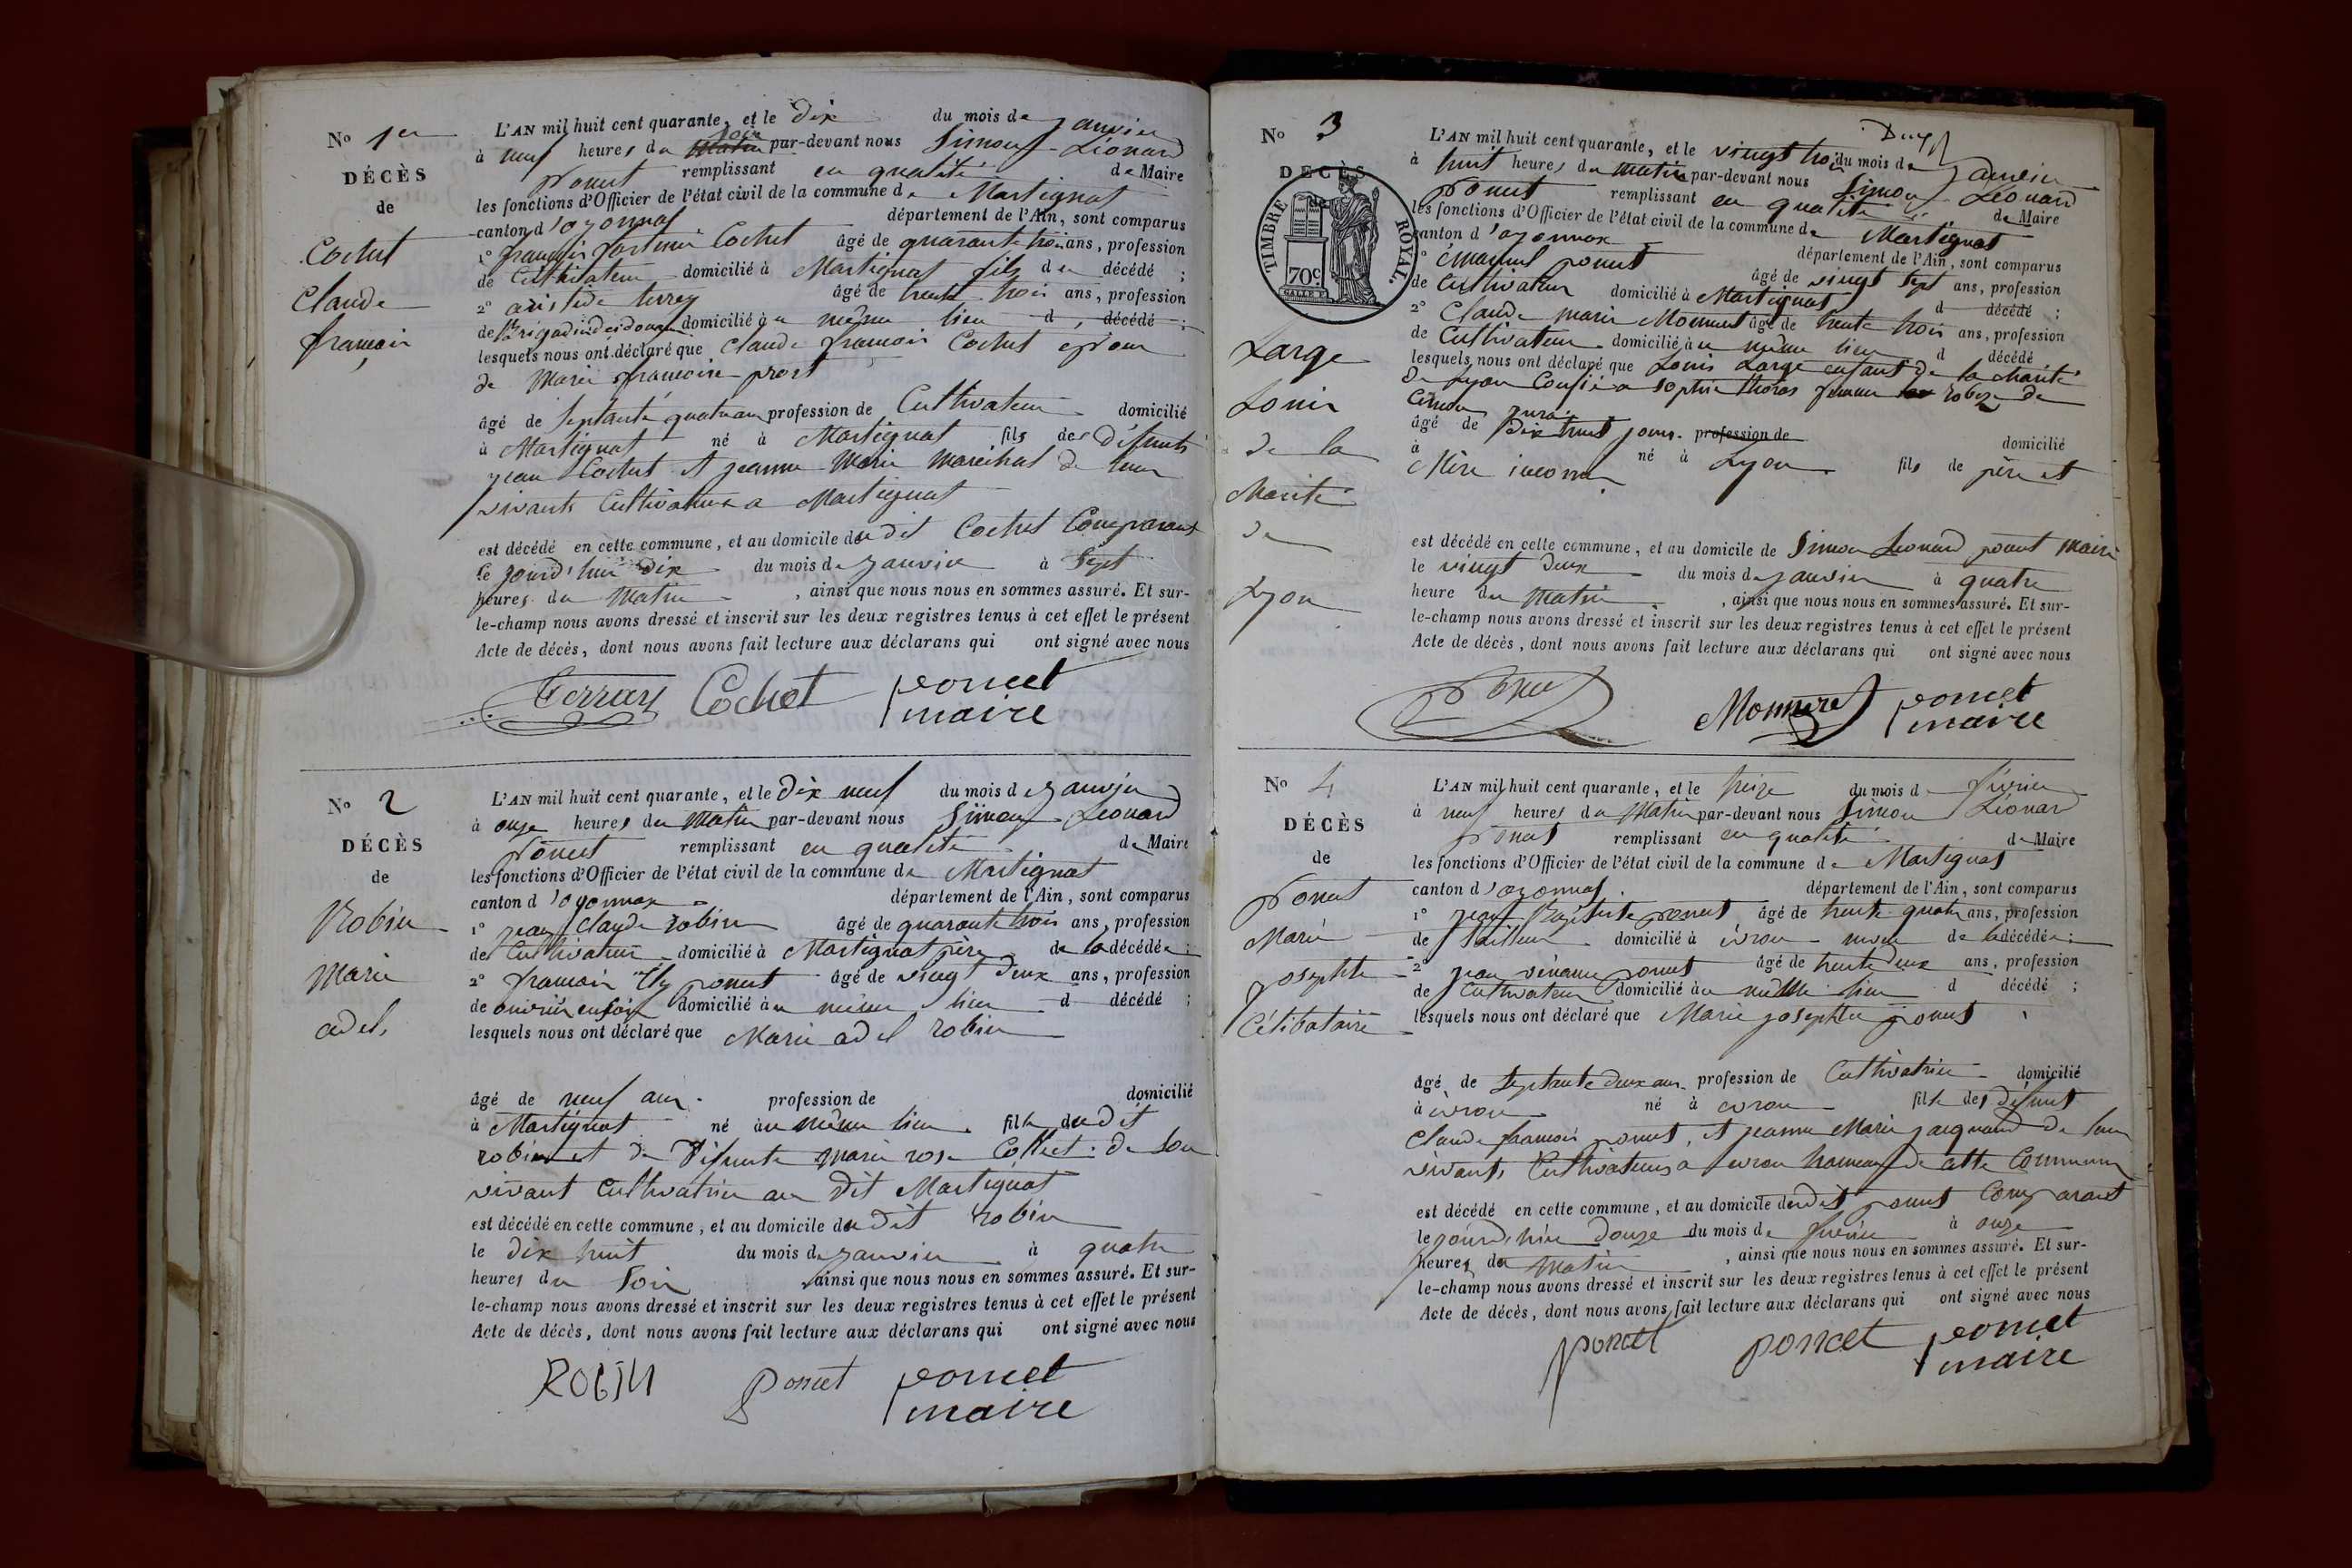 No 1er
DÉCÈS
de
Cochet
Claude
françois
L'AN mil huit cent quarante, et le Dix du mois de janvier
à neuf heures du soir par-devant nous Simon Léonard
poncet remplissant en qualité de Maire
les fonctions d'Officier de l'état civil de la commune de Martignat
canton d'oyonnax département de l'Ain, sont comparus
1° françois Cochet âgé de quarante trois ans, profession
de Cultivateur domicilié à Martignat fils du décédé ;
2° aristide terray âgé de trente trois ans, profession
de brigadier des douanes domicilié au même lieu d décédé ;
lesquels nous ont déclaré que Claude françois Cochet epoux
de Marie françoise prost
âgé de septante quatre ans profession de Cultivateur domicilié
à Martignat né à Martignat fils des Défunts
jean Cochet et jeanne Marie Marechal de leur
vivants Cultivateurs a Martignat
est décédé en cette commune, et au domicile du dit Cochet Comparant
le jourd'hui dix du mois de janvier à Sept
heures du Matin , ainsi que nous nous en sommes assuré. Et sur-
le-champ nous avons dressé et inscrit sur les deux registres tenus à cet effet le présent
Acte de décès, dont nous avons fait lecture aux déclarans qui ont signé avec nous
Terray Cochet poncet
maire
No 2
DÉCÈS
de
Robin
Marie
adel
L'AN mil huit cent quarante, et le Dix neuf du mois de janvier
à onze heures du Matin par-devant nous Simon Léonard
poncet remplissant en qualité de Maire
les fonctions d'Officier de l'état civil de la commune de Martignat
canton d'oyonnax département de l'Ain, sont comparus
1° jean Claude robin âgé de quarante trois ans, profession
de Cultivateur domicilié à Martignat père de la décédée ;
2° françois poncet âgé de vingt deux ans, profession
de ouvrier en soie domicilié au même lieu d décédé ;
lesquels nous ont déclaré que Marie adel robin
âgé de neuf ans profession de domicilié
à Martignat né au même lieu fille du dit
robin et de Défunte Marie rose Collet de son
vivant Cultivatrice au dit Martignat
est décédé en cette commune, et au domicile du dit robin
le dix huit du mois de janvier à quatre
heures du Soir , ainsi que nous nous en sommes assuré. Et sur-
le-champ nous avons dressé et inscrit sur les deux registres tenus à cet effet le présent
Acte de décès, dont nous avons fait lecture aux déclarans qui ont signé avec nous
ROBIN poncet poncet
maire
No 3
DÉCÈS
de
TIMBRE ROYAL.
70c.
Large
Louis
de la
charité
de
Lyon
L'AN mil huit cent quarante, et le vingt trois du mois de janvier
à huit heures du Matin par-devant nous Simon Léonard
poncet remplissant en qualité de Maire
les fonctions d'Officier de l'état civil de la commune de Martignat
canton d'oyonnax département de l'Ain, sont comparus
1° émanuel poncet âgé de vingt sept ans, profession
de Cultivateur domicilié à Martignat d décédé ;
2° Claude marie Monneret âgé de trente trois ans, profession
de Cultivateur domicilié au même lieu d décédé
lesquels nous ont déclaré que Louis Large enfant de la charité
De Lyon Confié a sophie femme robez de
jura
âgé de dix huit jours profession de domicilié
à né à Lyon fils de père et
Mère inconnu
est décédé en cette commune, et au domicile de Simon Leonard poncet Maire
le vingt deux du mois de janvier à quatre
heure du Matin , ainsi que nous nous en sommes assuré. Et sur-
le-champ nous avons dressé et inscrit sur les deux registres tenus à cet effet le présent
Acte de décès, dont nous avons fait lecture aux déclarans qui ont signé avec nous
Poncet Monneret poncet
maire
No 4
DÉCÈS
de
Poncet
Marie
josephte
Célibataire
L'AN mil huit cent quarante, et le treize du mois de février
à neuf heures du Matin par-devant nous Simon Léonard
poncet remplissant en qualité de Maire
les fonctions d'Officier de l'état civil de la commune de Martignat
canton d'oyonnax département de l'Ain, sont comparus
1° jean Baptiste poncet âgé de trente quatre ans, profession
de Tailleur domicilié à évron neveu de la décédée ;
2° jean poncet âgé de trente deux ans, profession
de Cultivateur domicilié au même lieu d décédé ;
lesquels nous ont déclaré que Marie josephte poncet
âgé de septante deux ans profession de Cultivatrice domicilié
à évron né à évron fille des défunts
Claude françois poncet, et jeanne Marie de leur
vivants Cultivateurs a evron hameau de cette Commune
est décédé en cette commune, et au domicile du dit poncet Comparant
le jourd'hui douze du mois de février à onze
heures du Matin , ainsi que nous nous en sommes assuré. Et sur-
le-champ nous avons dressé et inscrit sur les deux registres tenus à cet effet le présent
Acte de décès, dont nous avons fait lecture aux déclarans qui ont signé avec nous
poncet poncet poncet
maire